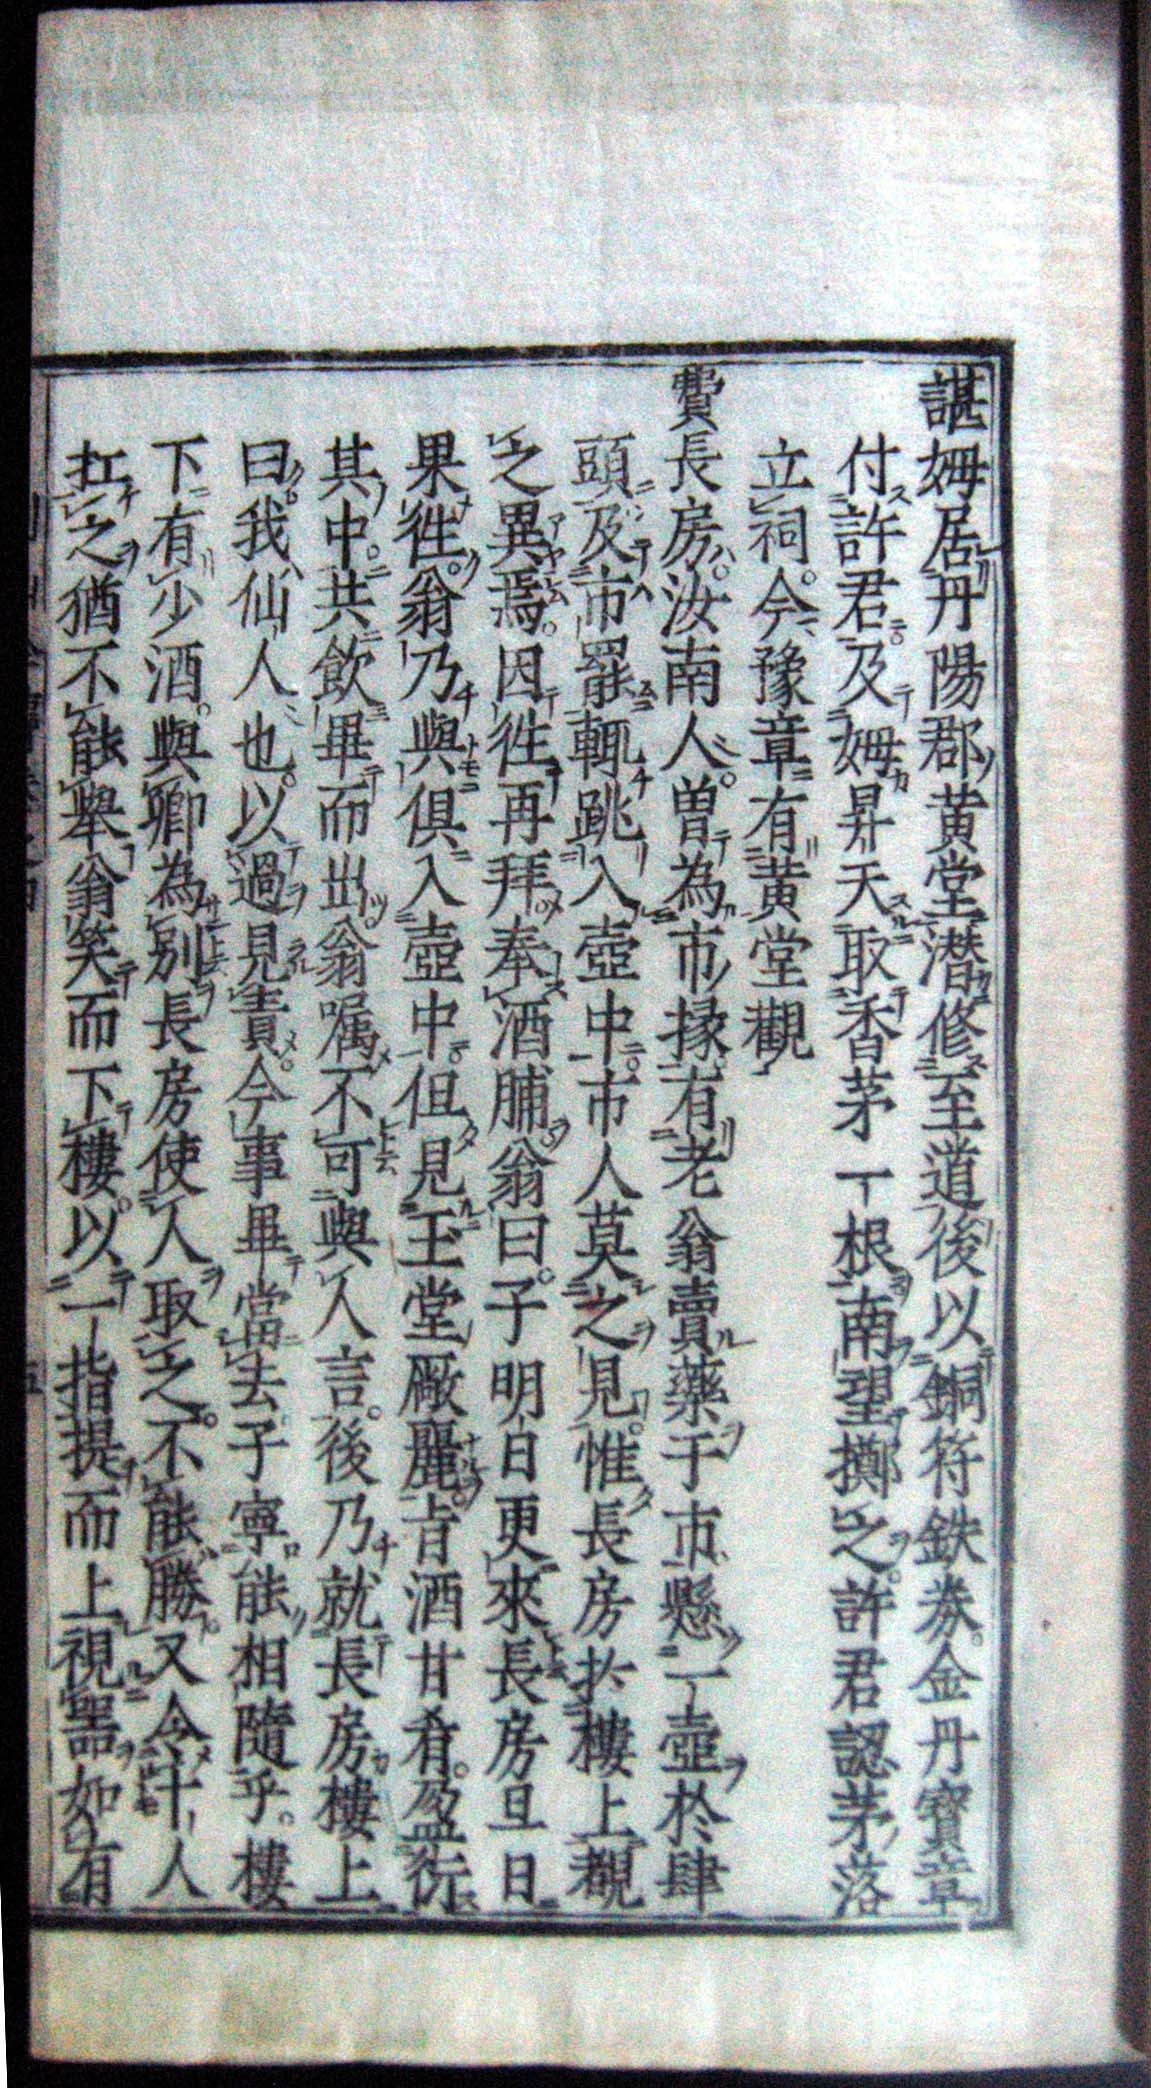 諶姆居丹陽郡黄堂潜修至道後以銅符鉄券金丹寶章
付許君及姆昇天取香茅一根南望擲之許君認茅落
立祠今豫章有黄堂觀
費長房汝南人曽為市掾有老翁賣藥于市懸一壺於肆
頭及市罷輙跳入壺中市人莫之見惟長房於樓上覩
之異焉因徃再拜奉酒脯翁曰子明日更來長房旦日
果徃翁乃與俱入壺中但見玉堂厰麗旨酒甘肴盈衍
其中共飲畢而出翁嘱不可與人言後乃就長房樓上
曰我仙人也以過見責今事畢當去子寧能相隨乎樓
下有少酒與卿為別長房使人取之不能勝又令十人
扛之猶不能舉翁笑而下樓以一指提而上視器如有